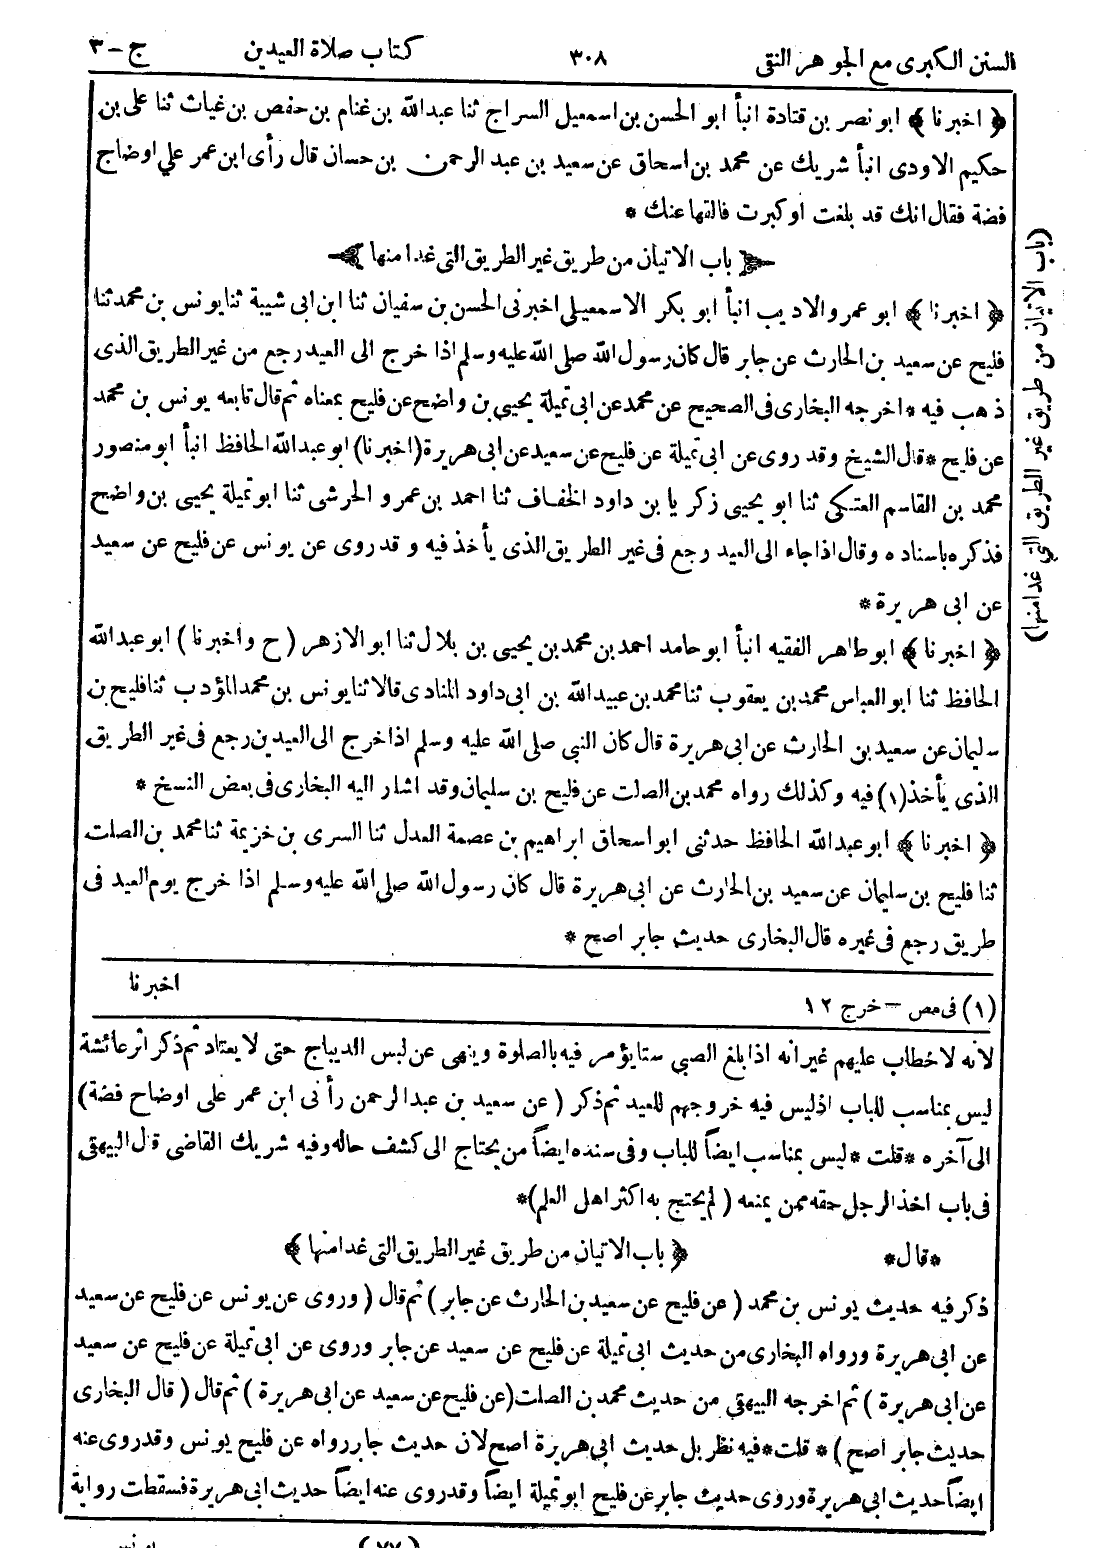 السنن الكبرى مع الجوهر النقى ٣٠٨ كتاب صلاة العيدين ج-٣
﴿ اخبرنا ﴾ ابو نصر بن قتادة انبأ ابو الحسن بن اسمعيل السراج ثنا عبدالله بن غنام بن حفص بن غياث ثنا على بن
حكيم الاودى انبأ شريك عن محمد بن اسحاق عن سعيد بن عبد الرحمن بن حسان قال رأى ابن عمر علي اوضاح
فضة فقال انك قد بلغت او كبرت فالقها عنك *
﴿ باب الاتيان من طريق غير الطريق التى غدا منها ﴾
﴿ اخبرنا ﴾ ابو عمرو الاديب انبأ ابو بكر الاسمعيلى اخبرنى الحسن بن سفيان ثنا ابن ابى شيبة ثنا يونس بن محمد ثنا
فليح عن سعيد بن الحارث عن جابر قال كان رسول الله صلى الله عليه وسلم اذا خرج الى العيد رجع من غير الطريق الذى
ذهب فيه * اخرجه البخارى فى الصحيح عن محمد عن ابى تميلة يحيى بن واضح عن فليح بمعناه ثم قال تابعه يونس بن محمد
عن فليح * قال الشيخ وقد روى عن ابى تميلة عن فليح عن سعيد عن ابى هريرة (اخبرنا) ابو عبد الله الحافظ انبأ ابو منصور
محمد بن القاسم العتكى ثنا ابو يحيى زكريا بن داود الخفاف ثنا احمد بن عمرو الحرشى ثنا ابو تميلة يحيى بن واضح
فذكره باسناده وقال اذا جاء الى العيد رجع فى غير الطريق الذى يأخذ فيه وقد روى عن يونس عن فليح عن سعيد
عن ابى هريرة *
﴿ اخبرنا ﴾ ابو طاهر الفقيه انبأ ابو حامد احمد بن محمد بن يحيى بن بلال ثنا ابو الازهر ( ح واخبرنا ) ابو عبد الله
الحافظ ثنا ابو العباس محمد بن يعقوب ثنا محمد بن عبيد الله بن ابى داود المنادى قالا ثنا يونس بن محمد المؤدب ثنا فليح بن
سليمان عن سعيد بن الحارث عن ابى هريرة قال كان النبى صلى الله عليه وسلم اذا خرج الى العيدين رجع فى غير الطريق
الذى يأخذ (١) فيه وكذلك رواه محمد بن الصلت عن فليح بن سليمان وقد اشار اليه البخارى فى بعض النسخ *
﴿ اخبرنا ﴾ ابو عبد الله الحافظ حدثنى ابو اسحاق ابراهيم بن عصمة العدل ثنا السرى بن خزيمة ثنا محمد بن الصلت
ثنا فليح بن سليمان عن سعيد بن الحارث عن ابى هريرة قال كان رسول الله صلى الله عليه وسلم اذا خرج يوم العيد فى
طريق رجع فى غيره قال البخارى حديث جابر اصح *
اخبرنا
(١) فى مص - خرج ١٢
لانه لا خطاب عليهم غير انه اذا بلغ الصبى ستا يؤمر فيه بالصلوة وينهى عن لبس الديباج حتى لا يعتاد ثم ذكر اثر عائشة
ليس بمناسب للباب اذ ليس فيه خروجهم للعيد ثم ذكر ( عن سعيد بن عبد الرحمن رأنى ابن عمر على اوضاح فضة )
الى آخره * قلت * ليس بمناسب ايضاً للباب وفى سنده ايضاً من يحتاج الى كشف حاله وفيه شريك القاضى قال البيهقى
فى باب اخذ الرجل حقه ممن يمنعه ( لم يحتج به اكثر اهل العلم ) *
* قال * ﴿ باب الاتيان من طريق غير الطريق التى غدا منها ﴾
ذكر فيه حديث يونس بن محمد ( عن فليح عن سعيد بن الحارث عن جابر ) ثم قال ( وروى عن يونس عن فليح عن سعيد
عن ابى هريرة ورواه البخارى من حديث ابى تميلة عن فليح عن سعيد عن جابر وروى عن ابى تميلة عن فليح عن سعيد
عن ابى هريرة ) ثم اخرجه البيهقى من حديث محمد بن الصلت ( عن فليح عن سعيد عن ابى هريرة ) ثم قال ( قال البخارى
حديث جابر اصح ) * قلت * فيه نظر بل حديث ابى هريرة اصح لان حديث جابر رواه عن فليح يونس وقد روى عنه
ايضاً حديث ابى هريرة وروى حديث جابر عن فليح ابو تميلة ايضاً وقد روى عنه ايضاً حديث ابى هريرة فسقطت رواية
(٧٧)
(باب الاتيان من طريق غير الطريق التى غدا منها)